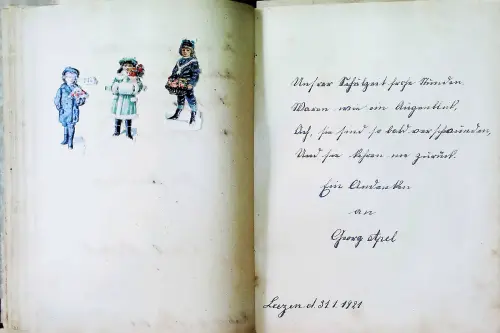 Unsrer Schulzeit frohe Stunden
Waren wie ein Augenblick,
Ach, sie sind so bald verschwunden,
Und sie kehren nie zurück.
Ein Andenken
an
Georg Apel
d. 31.1.1921